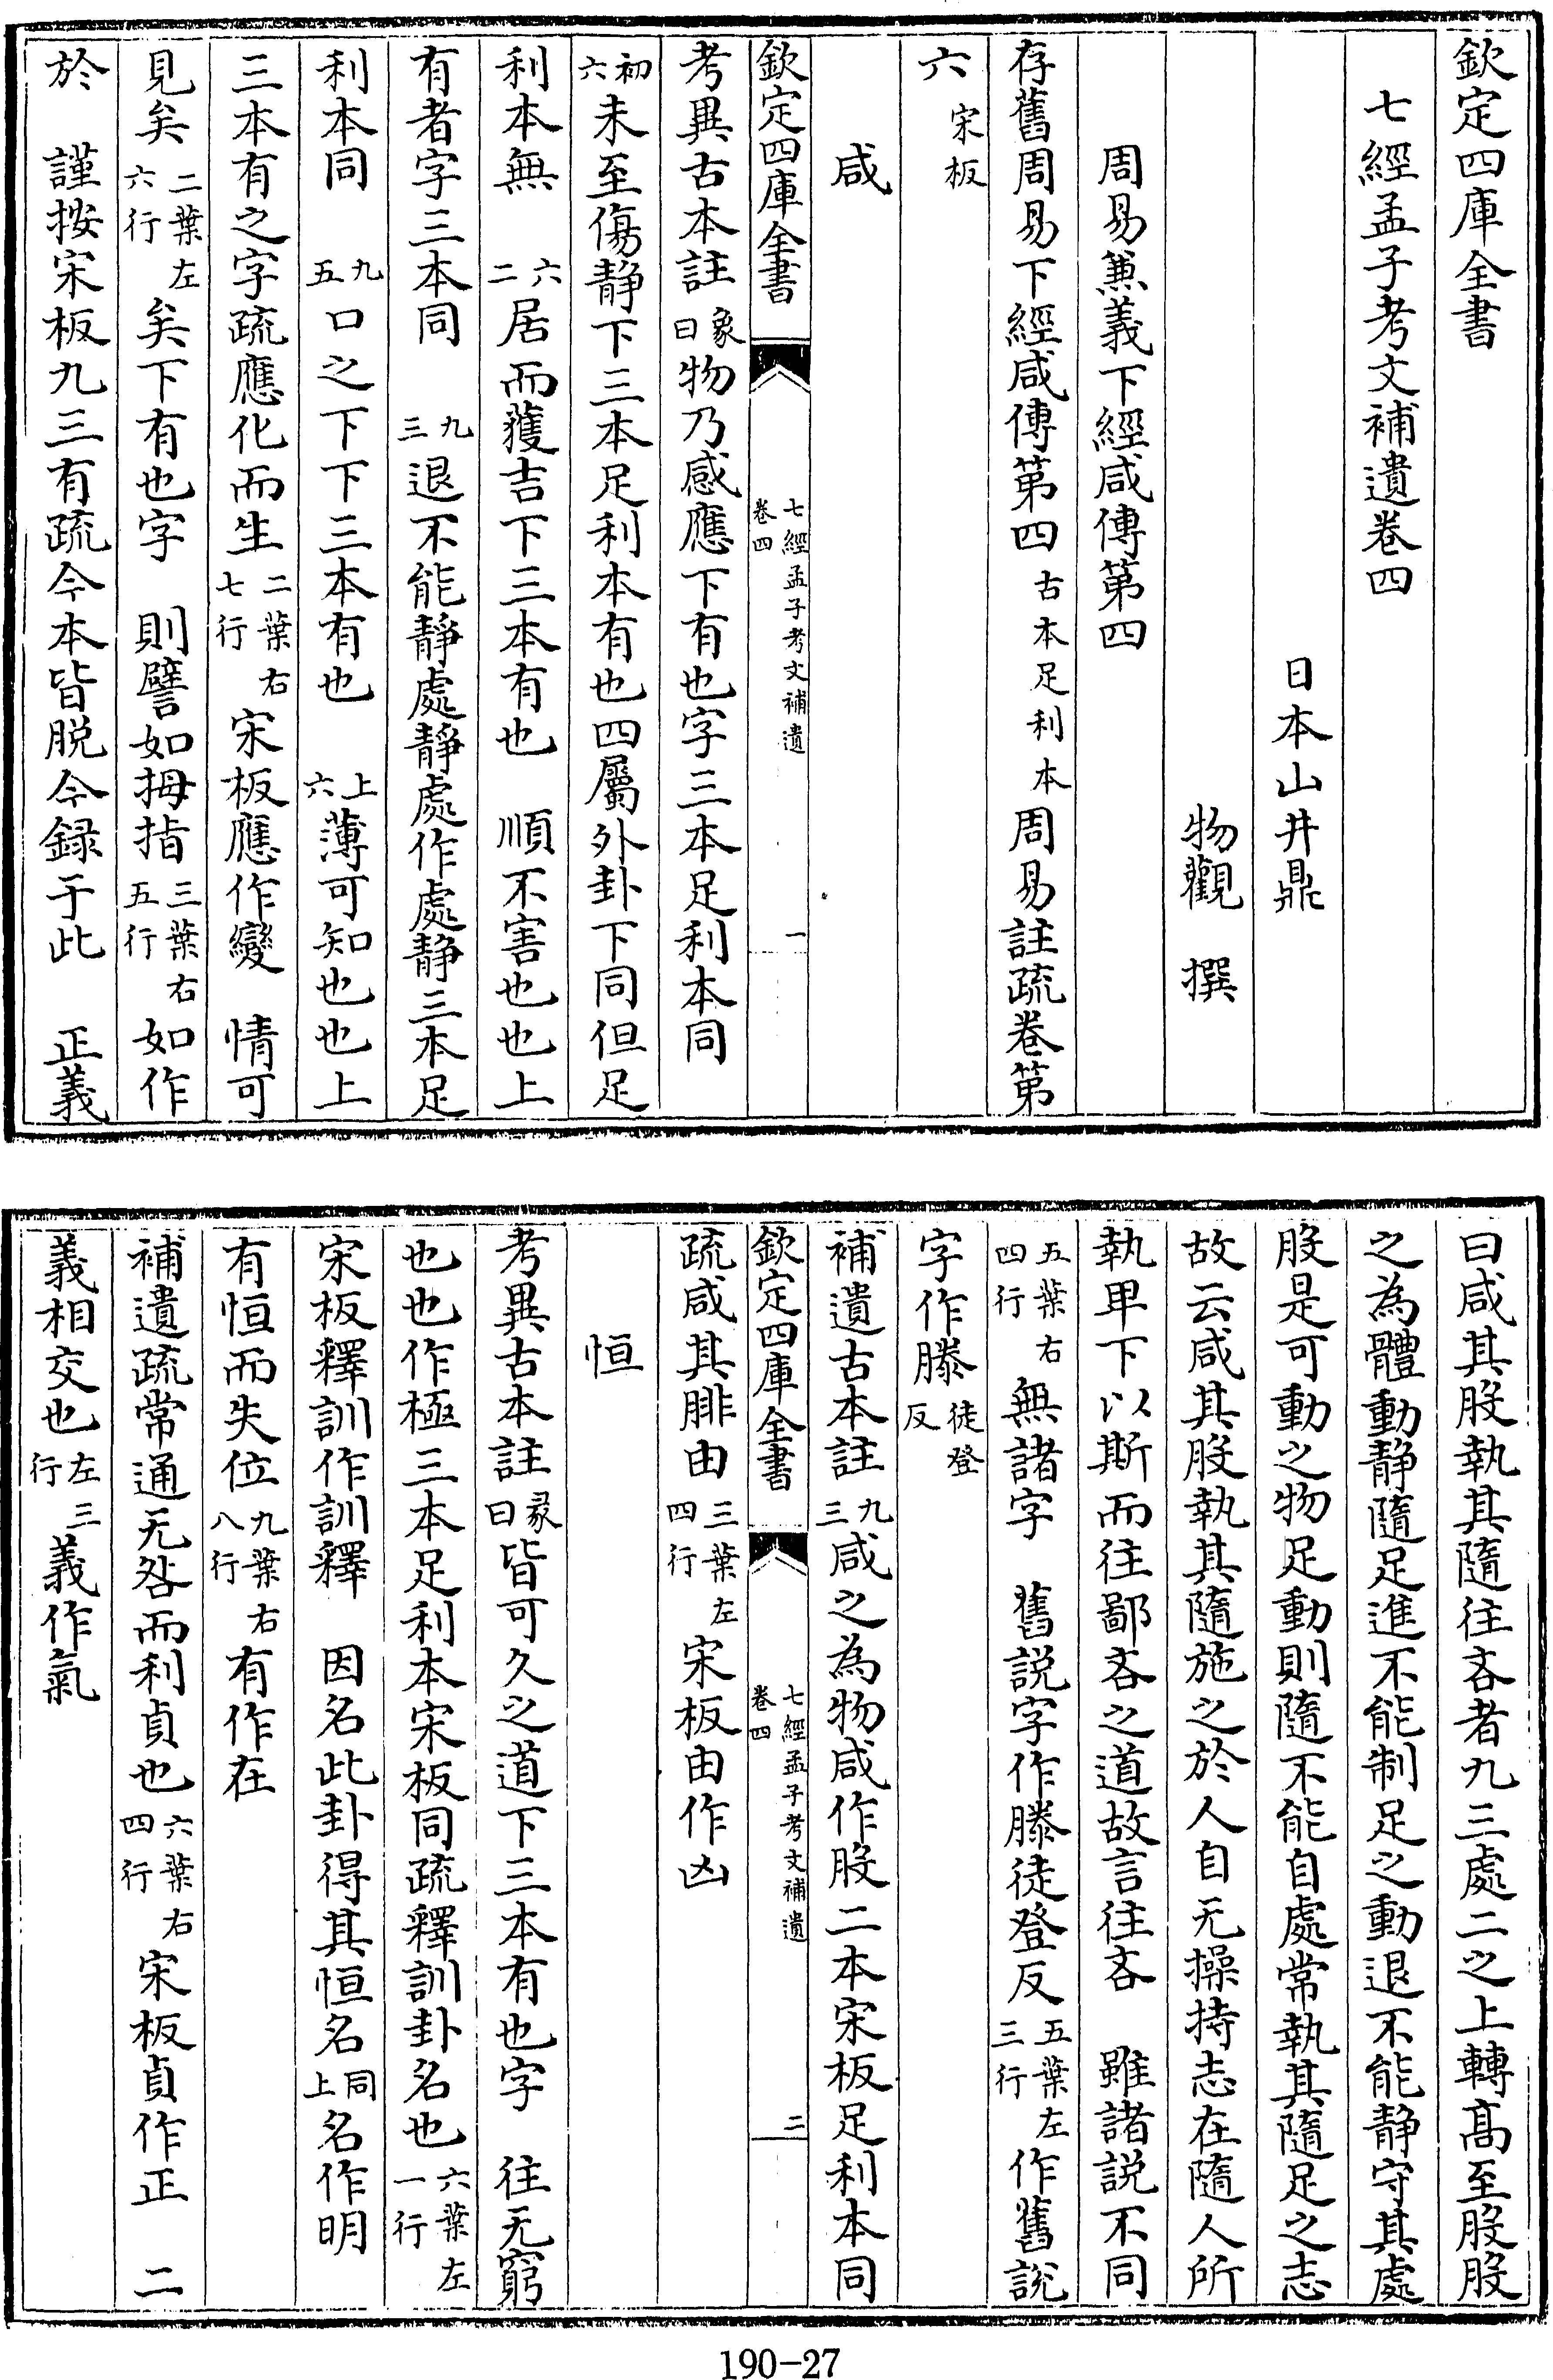 欽定四庫全書
七經孟子考文補遺卷四
日本山井鼎
物觀　撰
周易兼義下經咸傳第四
存舊周易下經咸傳第四古本足利本周易註疏卷第
六宋板
咸
欽定四庫全書　七經孟子考文補遺卷四　一
考異古本註象曰物乃感應下有也字三本足利本同
初六未至傷静下三本足利本有也四屬外卦下同但足
利本無　六二居而獲吉下三本有也　順不害也也上
有者字三本同　九三退不能靜處靜處作處静三本足
利本同　九五口之下下三本有也　上六薄可知也也上
三本有之字疏應化而生二葉右七行宋板應作變　情可
見矣二葉左六行矣下有也字　則譬如拇指三葉右五行如作
於　謹按宋板九三有疏今本皆脱今録于此　正義
曰咸其股執其隨往吝者九三處二之上轉髙至股股
之為體動静隨足進不能制足之動退不能静守其處
股是可動之物足動則隨不能自處常執其隨足之志
故云咸其股執其隨施之於人自无操持志在隨人所
執卑下以斯而往鄙吝之道故言往吝　雖諸說不同
五葉右四行無諸字　舊説字作滕徒登反五葉左三行作舊說
字作滕徒登反
補遺古本註九三咸之為物咸作股二本宋板足利本同
欽定四庫全書　七經孟子考文補遺卷四　二
疏咸其腓由三葉左四行宋板由作凶
恒
考異古本註彖曰皆可久之道下三本有也字　往无窮
也也作極三本足利本宋板同疏釋訓卦名也六葉左一行
宋板釋訓作訓釋　因名此卦得其恒名同上名作明
有恒而失位九葉右八行有作在
補遺疏常通无咎而利貞也六葉右四行宋板貞作正　二
義相交也左三行義作氣
190-27